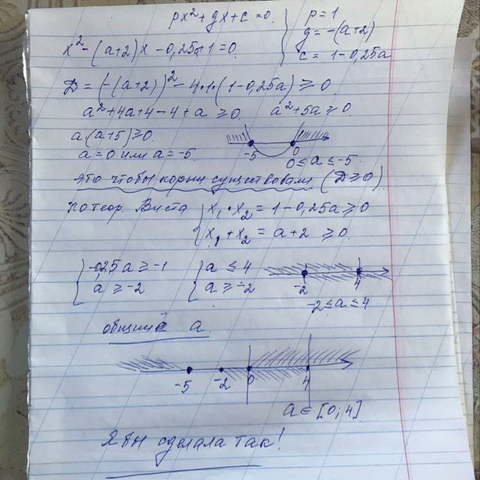 px²+gx+c=0. { p=1
x²-(a+2)x-0,25a+1=0. g=-(a+2)
c=1-0,25a
D=(-(a+2))²-4·1·(1-0,25a)≥0.
a²+4a+4-4+a≥0. a²+5a≥0.
a(a+5)≥0.
a=0 или a=-5.
-5 0
0≤a≤-5.
это чтобы корни существовали (D≥0)
по теор. Виета { x₁·x₂=1-0,25a≥0
x₁+x₂=a+2≥0.
{ -0,25a≥-1 { a≤4
a≥-2 a≥-2
-2 4
-2≤a≤4
общий a
-5 -2 0 4
a∈[0;4]
Я бы сделала так!